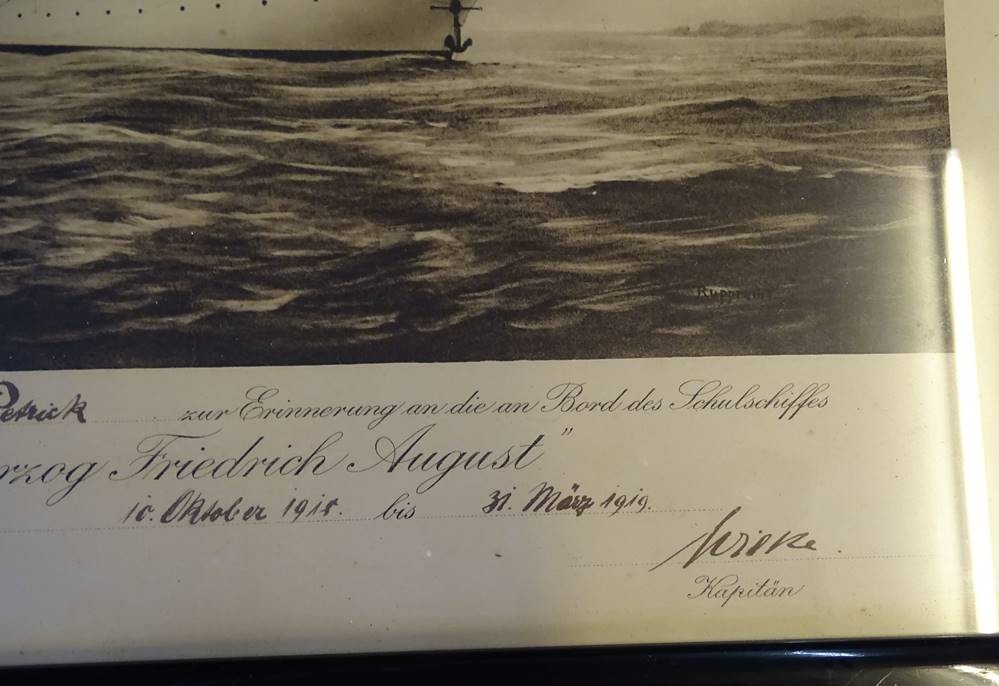 Petrick zur Erinnerung an die an Bord des Schulschiffes
rzog Friedrich August"
10. Oktober 1918. bis 31. März 1919.
Kapitän